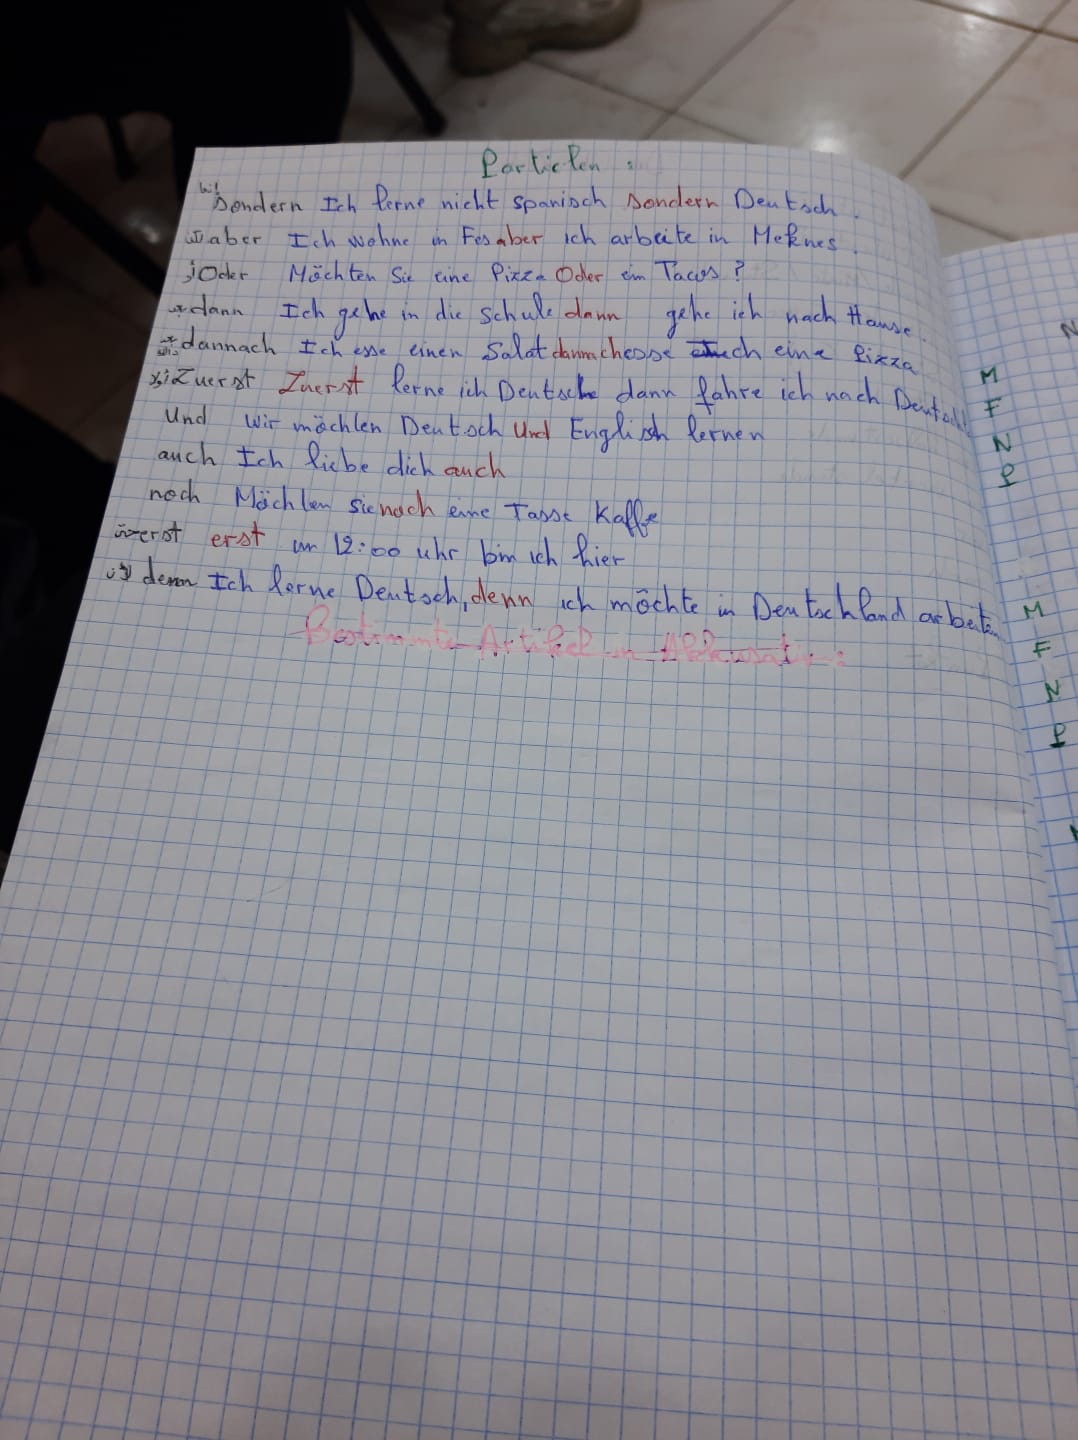 Particlen :
sondern Ich lerne nicht spanisch sondern Deutsch.
aber Ich wohne in Fes aber ich arbeite in Meknes.
Oder Möchten Sie eine Pizza Oder ein Tacos ?
dann Ich gehe in die schule dann gehe ich nach Hause.
dannach Ich esse einen Salat dannach esse ich eine Pizza
Zuerst Zuerst lerne ich Deutsch dann fahre ich nach
Und wir möchten Deutsch Und Englisch lernen
auch Ich liebe dich auch
noch Möchten sie noch eine Tasse Kaffe
erst erst um 12:00 uhr bin ich hier
denn Ich lerne Deutsch, denn ich möchte in Deutschland arbeiten
Bestimmte Artikel in Akkusativ :
M
F
N
P
M
F
N
P